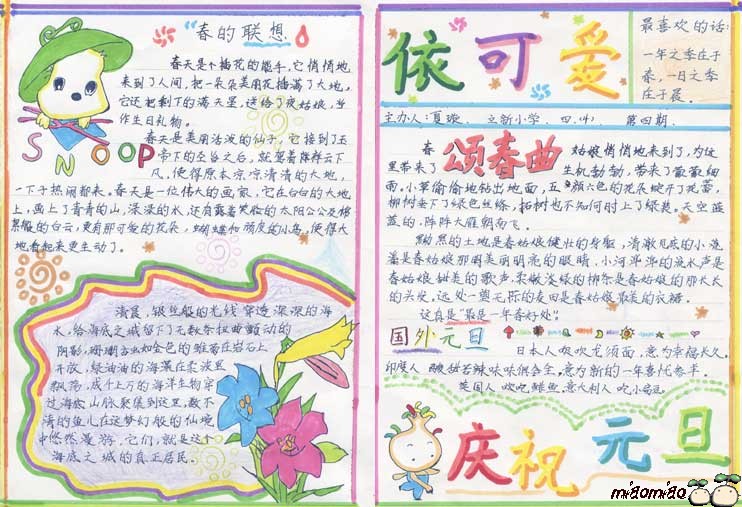 "春的联想
春天是个插花的能手,它悄悄地
来到了人间,把一朵朵美丽花插满了大地。
它还把剩下的满天星,送给了夜姑娘,当
作生日礼物。
SNOOP
春天是美丽活泼的仙子,它接到玉
帝下的圣旨之后,就驾着祥云下
凡,使得原本凉凉清清的大地,
一下子热闹都来。春天是一位伟大的画家,它在白白的大地
上,画上了青青的山,深深的水,还有露着笑脸的太阳公公及穿
黑服的白云,更有那可爱的花朵,蝴蝶和顽皮的小鸟,使得大
地看起来更生动了。
清晨,银丝般的光线穿透深深的海
水,给海底之城留下了无数条扭曲颤动的
阴影,珊瑚虫如金色的雏菊在岩石上
开放,绿油油的海藻在柔波里
飘荡,成千上万的海洋生物穿
过海底山脉聚集到这里,数不
清的鱼儿在这梦幻般的仙境
中悠然漫游,它们,就是这个
海底之城的真正居民。
依可爱
最喜欢的话:
一年之季在于
春,一日之季
在于晨。
主办人:夏璇 立新小学 四.(4) 第四期
颂春曲
春姑娘悄悄地来到了,为这
里带来了生机勃勃,带来了微微细
雨。小草偷偷地钻出地面,五颜六色的花朵绽开了花蕾,
柳树垂下了绿色丝绦,拓树也不知何时上了绿装。天空蓝
蓝的,阵阵大雁朝南飞。
黝黑的土地是春姑娘健壮的身躯,清澈见底的小流
溪是春姑娘那明美丽明亮的眼睛,小河哗哗的流水声是
春姑娘甜美的歌声,柔嫩淡绿的柳条是春姑娘的那长长
的头发,远处一望无际的麦田是春姑娘最美的衣裙。
这真是"最是一年春好处"
国外元旦
日本人吸吹龙须面,意为幸福长久。
印度人 酸甜苦辣味味俱全尝,意为新的一年喜忧参半。
英国人欢吃鲱鱼,意大利人吃小扁豆。
庆祝元旦
miaomiao